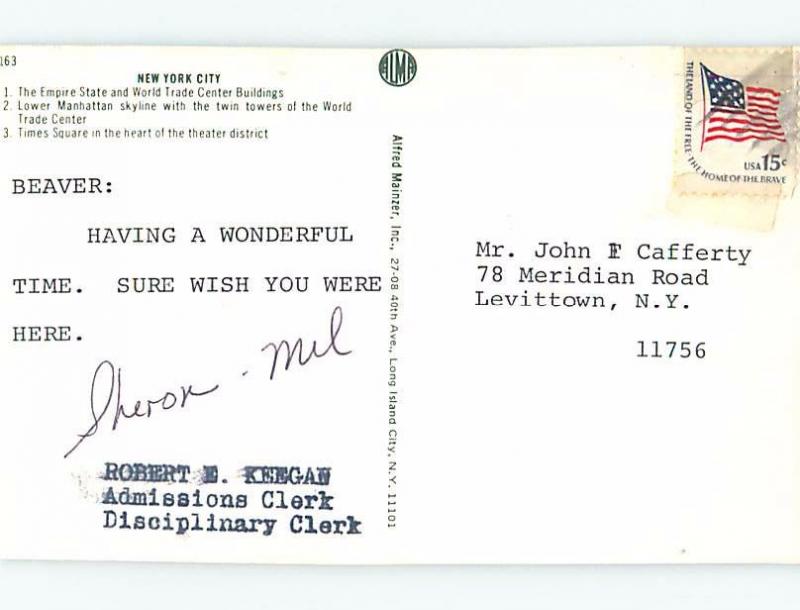 163
NEW YORK CITY
1. The Empire State and World Trade Center Buildings
2. Lower Manhattan skyline with the twin towers of the World
Trade Center
3. Times Square in the heart of the theater district
BEAVER:
HAVING A WONDERFUL
TIME. SURE WISH YOU WERE
HERE.
Sheron - Mel
ROBERT E. KEEGAN
Admissions Clerk
Disciplinary Clerk
ALMA
Alfred Mainzer, Inc., 27-08 40th Ave., Long Island City, N.Y. 11101
THE LAND OF THE FREE · THE HOME OF THE BRAVE
USA 15c
Mr. John F Cafferty
78 Meridian Road
Levittown, N.Y.
11756